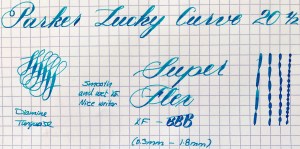 Parker Lucky Curve 20 ½
Super
Flex
XF - BBB
(0.3mm - 1.8mm)
Smooth
and wet XF
Nice writer
Diamine
Turquoise